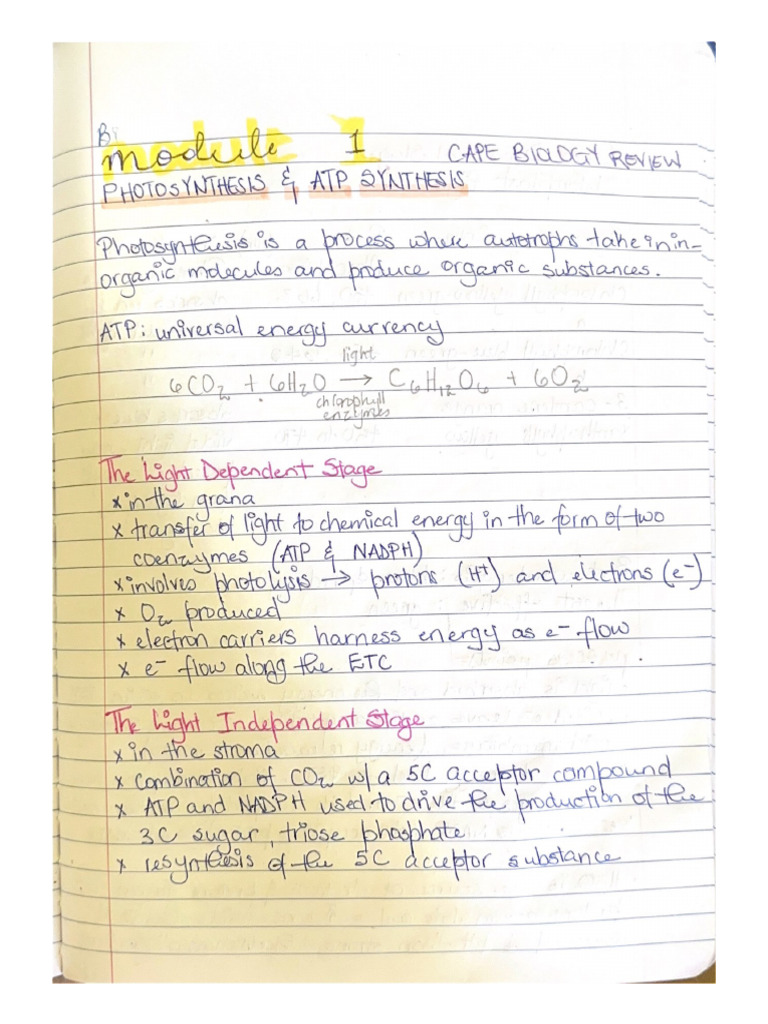 By
module 1 CAPE BIOLOGY REVIEW
PHOTOSYNTHESIS & ATP SYNTHESIS
Photosynthesis is a process where autotrophs take in in-
organic molecules and produce organic substances.
ATP: universal energy currency
light
6CO₂ + 6H₂O → C₆H₁₂O₆ + 6O₂
chlorophyll
enzymes
The Light Dependent Stage
x in the grana
x transfer of light to chemical energy in the form of two
coenzymes (ATP & NADPH)
x involves photolysis → protons (H⁺) and electrons (e⁻)
x O₂ produced
x electron carriers harness energy as e⁻ flow
x e⁻ flow along the ETC
The Light Independent Stage
x in the stroma
x combination of CO₂ w/ a 5C acceptor compound
x ATP and NADPH used to drive the production of the
3C sugar, triose phosphate
x resynthesis of the 5C acceptor substance